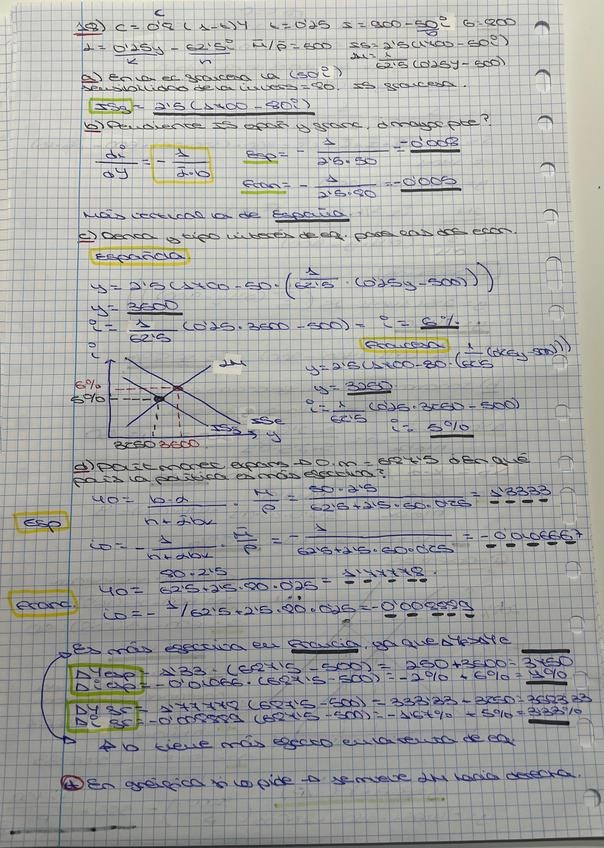 c
18) C = 0'8 (1-t) Y t = 0'25 I = 900 - 50i G = 800
L = 0'25y - 62'5i M̄/P̄ = 500 IS = 2'5 (1700 - 50i)
k n LM = 1/62'5 (0'25y - 500)
a) En la ec francesa la (50i)
sensibilidad de la invers = 80. IS francesa.
ISf = 2'5 (1700 - 80i)
b) Pendiente IS españ y franc. ¿mayor pte?
di/dY = - 1/α·b Esp = - 1/2'5·50 = -0'008
Fran = - 1/2'5·80 = -0'005
Más vertical la de España.
c) Renta y tipo interés de eq. para las dos econ.
Española
y = 2'5 (1700 - 50 · (1/62'5 · (0'25y - 500)))
y = 3600
i = 1/62'5 (0'25·3600 - 500) = i = 6%.
Francesa
y = 2'5 (1700 - 80 · (1/62'5 (0'25y - 500)))
y = 3250
i = 1/62'5 (0'25·3250 - 500)
i = 5%
i
LM
6%
5%
ISe
ISf y
3250 3600
d) Polít. monet. expans → O.m = 687'5 ¿En qué
país la política es más efectiva?
Esp
Y0 = b·α/n+αbk · M̄/P̄ = 50·2'5/62'5+2'5·50·0'25 = 1'3333
i0 = - 1/n+αbk · M̄/P̄ = - 1/62'5+2'5·50·0'25 = -0'0106667
Franc.
Y0 = 80·2'5/62'5+2'5·80·0'25 = 1'7778.
i0 = - 1/62'5+2'5·80·0'25 = -0'008889
Es más efectiva en Francia, ya que ΔYf>ΔYe
ΔY esp = 1'33 · (687'5 - 500) = 250 + 3600 = 3850
Δi esp = -0'01066 · (687'5 - 500) = -2% + 6% = 4%
ΔY fr = 1'7778 (687'5 - 500) = 333'33 + 3250 = 3583'33
Δi fr = -0'008889 (687'5 - 500) = -1'67% + 5% = 3'33%
↑ b tiene más efecto en la renta de eq.
En gráfica si lo pide → se mueve LM hacia derecha.